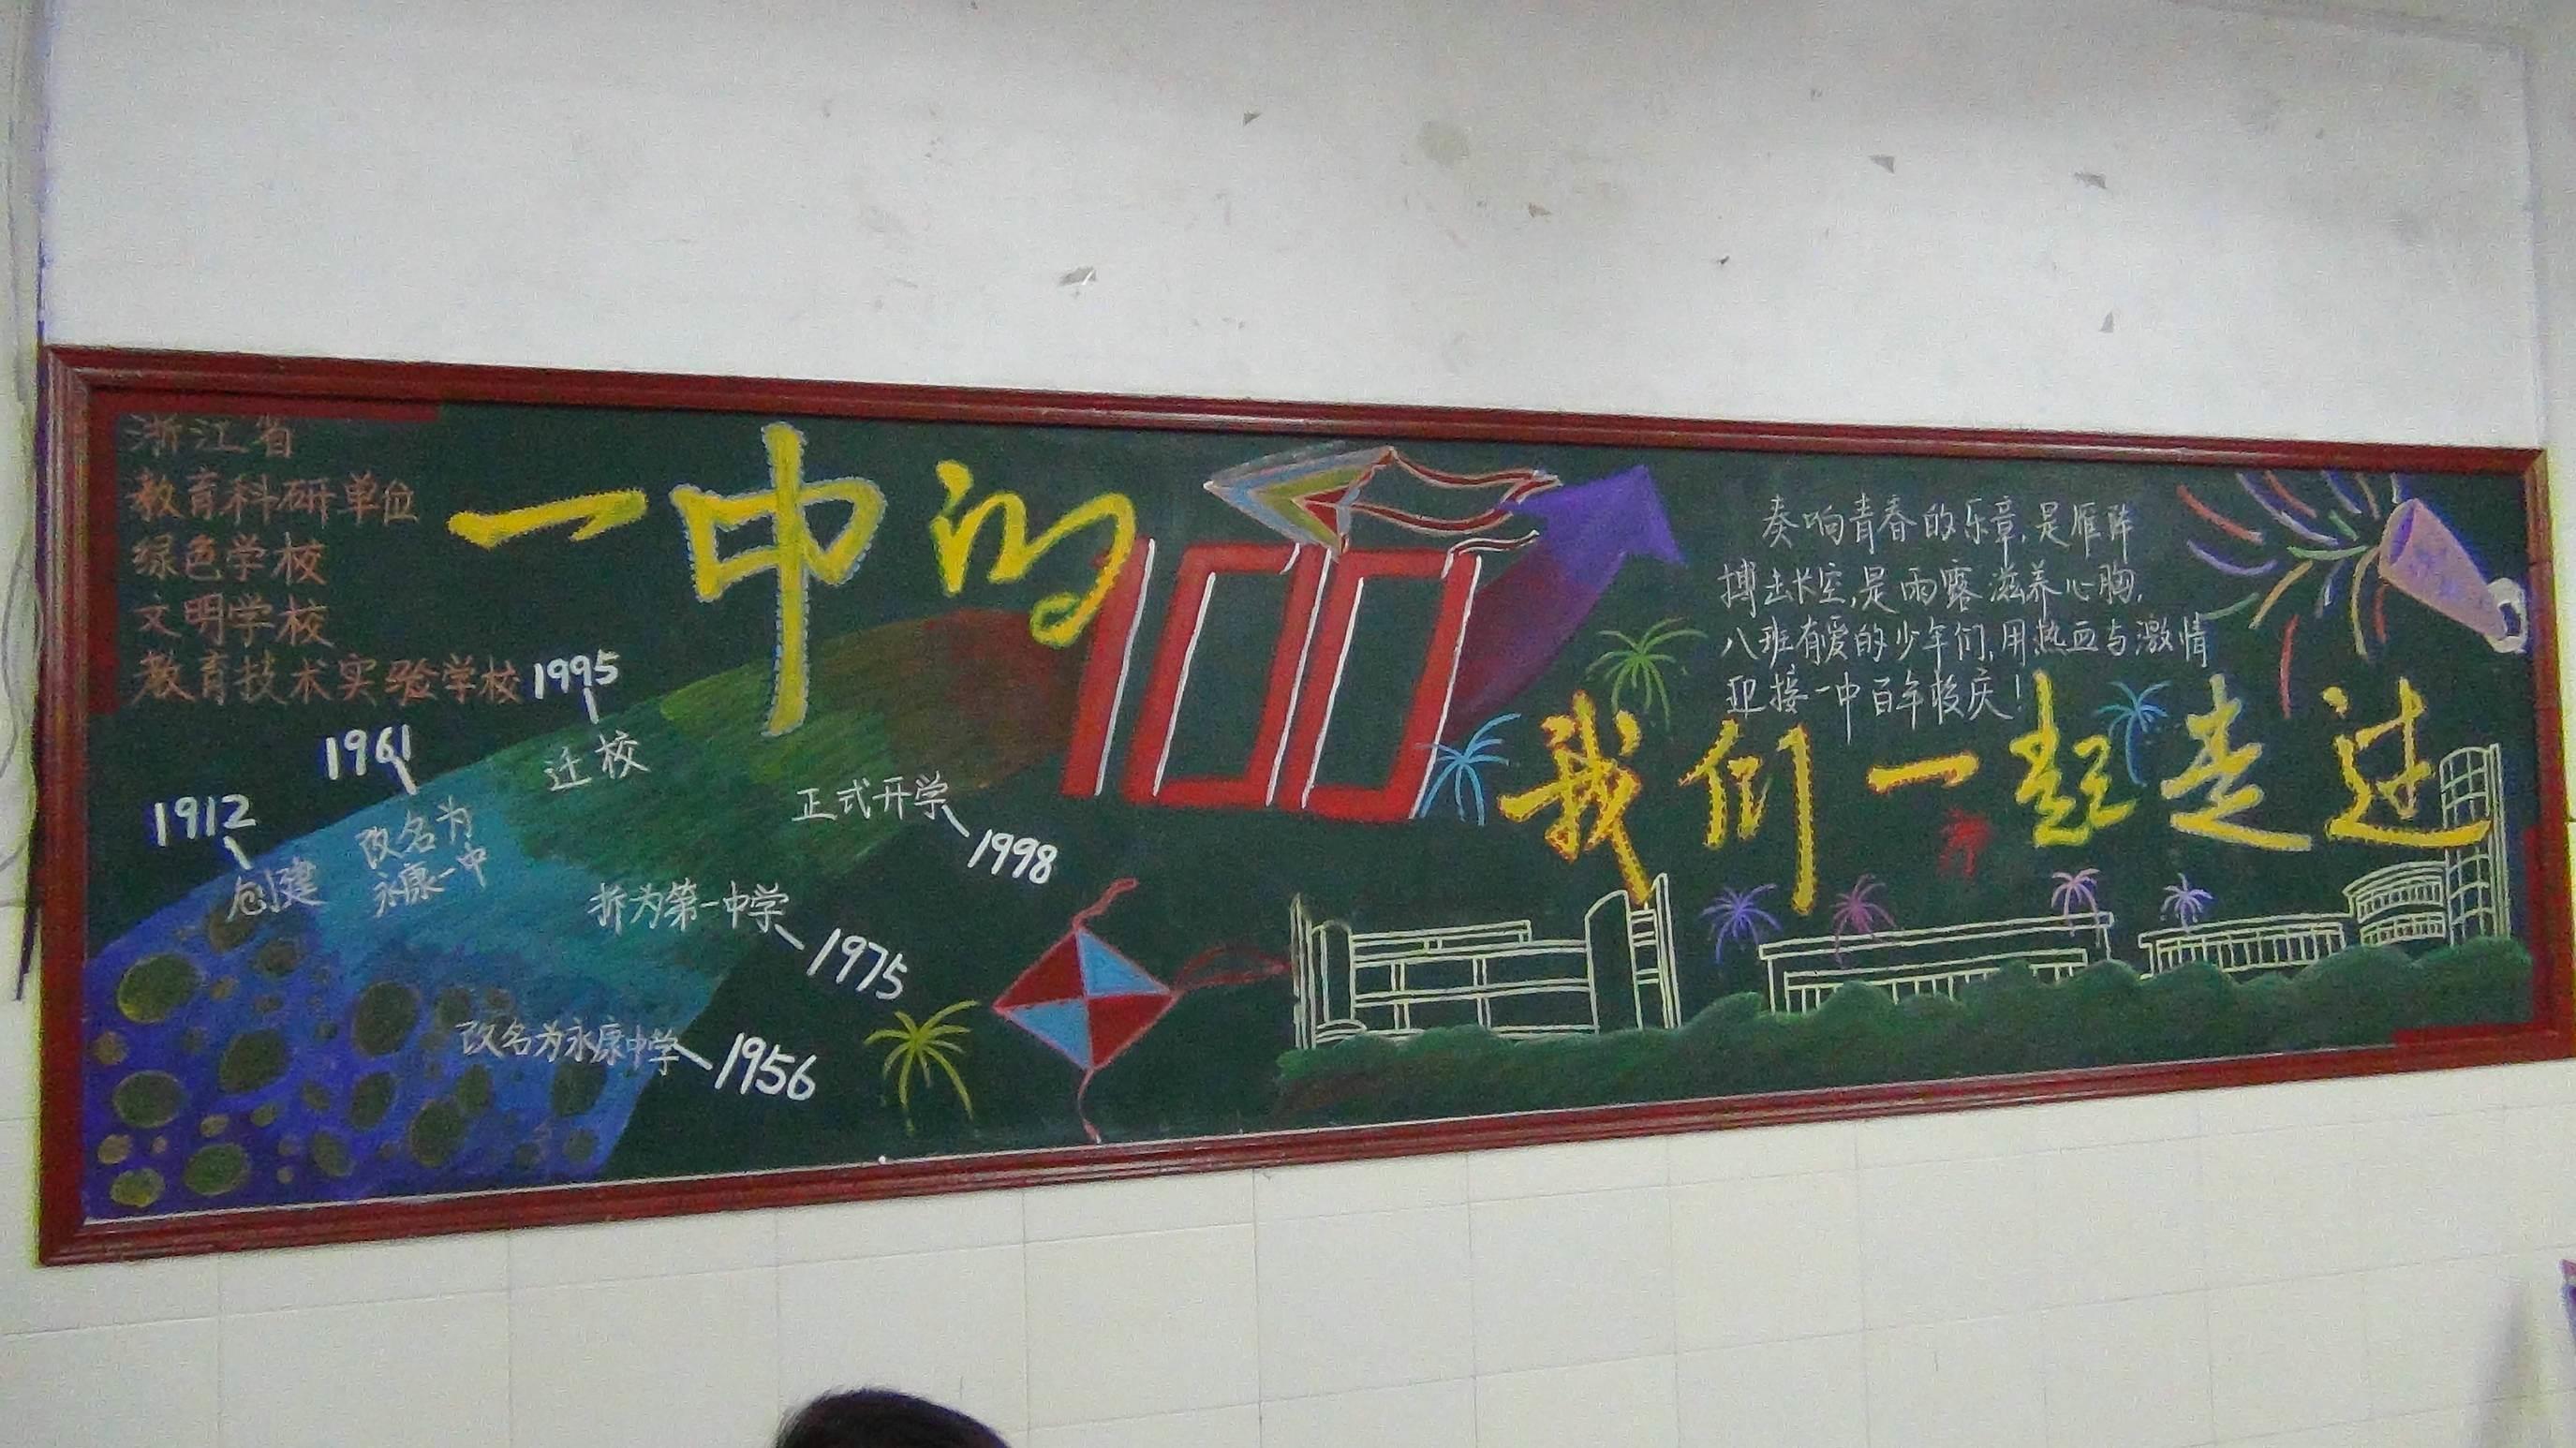 浙江省
教育科研单位
绿色学校
文明学校
教育技术实验学校
一中的
100
我们一起走过
1912
创建
1961
改名为
永康一中
1995
迁校
正式开学
1998
拆为第一中学
1975
改名为永康中学
1956
奏响青春的乐章,是雁阵
搏击长空,是雨露滋养心胸.
八班有爱的少年们,用热血与激情
迎接一中百年校庆!